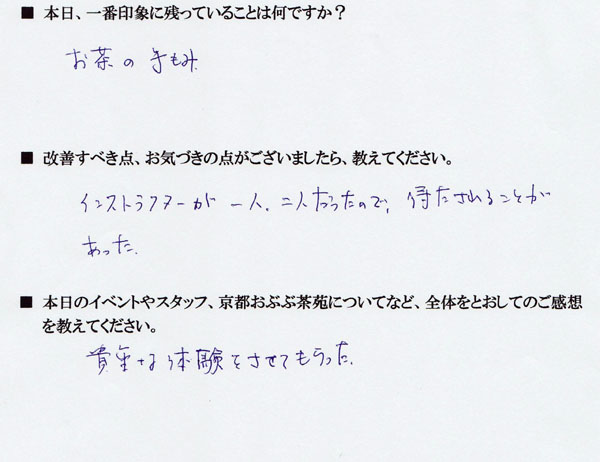 ■ 本日、一番印象に残っていることは何ですか？
お茶の手もみ
■ 改善すべき点、お気づきの点がございましたら、教えてください。
インストラクターが一人、二人だったので、待たされることが
あった。
■ 本日のイベントやスタッフ、京都おぶぶ茶苑についてなど、全体をとおしてのご感想
を教えてください。
貴重な体験をさせてもらった。